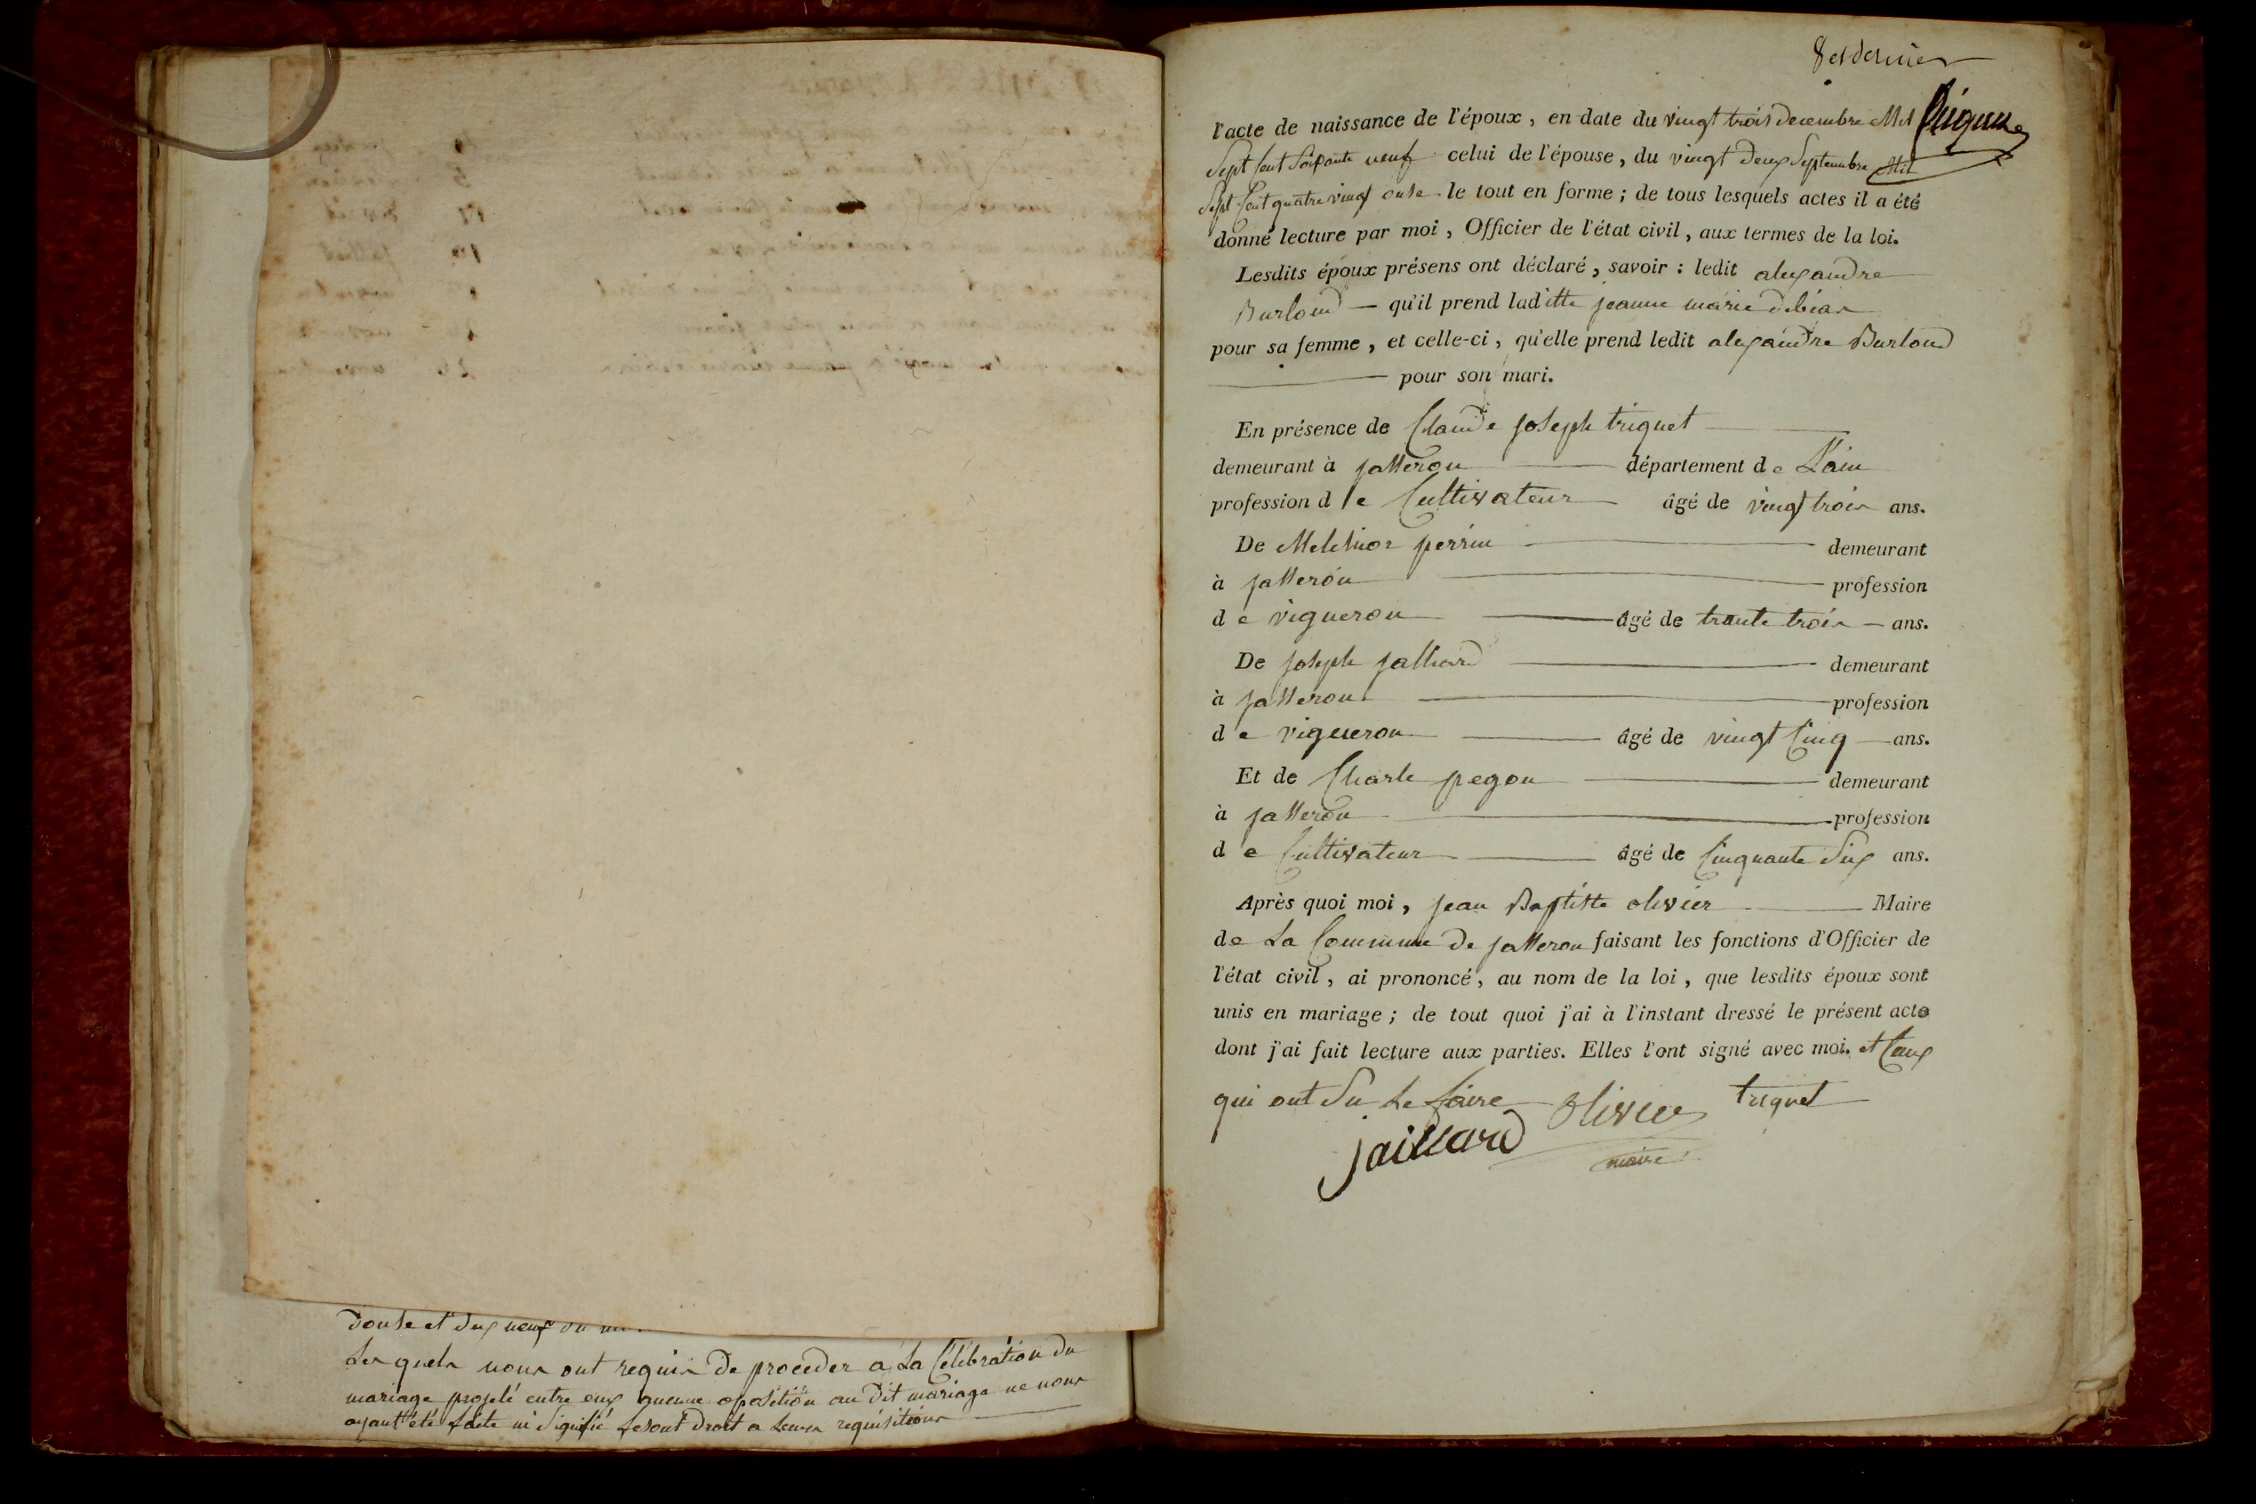 douse et dix neuf du
Les quels nous ont requis de proceder a La Célébration du
mariage projeté entre eux aucune oposition au dit mariage ne nous
ayant été faite ni Signifié fesont droit a Leurs requisitions
8 et dernier
l'acte de naissance de l'époux, en date du vingt trois decembre Mil
Sept Cent Soixante neuf celui de l'épouse, du vingt deux Septembre Mil
Sept Cent quatre vingt onse le tout en forme ; de tous lesquels actes il a été
donné lecture par moi, Officier de l'état civil, aux termes de la loi.
Lesdits époux présens ont déclaré, savoir : ledit alexandre
Burloud — qu'il prend laditte jeanne marie debias
pour sa femme, et celle-ci, qu'elle prend ledit alexandre Burloud
pour son mari.
En présence de Claude joseph triquet
demeurant à jasseron département de L'ain
profession de Cultivateur âgé de vingt trois ans.
De Melchior perrin demeurant
à jasseron profession
de vigneron âgé de trante trois — ans.
De joseph jalliard demeurant
à jasseron profession
de vigneron âgé de vingt Cinq — ans.
Et de Charle pegon demeurant
à jasseron profession
de Cultivateur âgé de Cinquante Six ans.
Après quoi moi, jean Baptiste olivier Maire
de La Commune de jasseron faisant les fonctions d'Officier de
l'état civil, ai prononcé, au nom de la loi, que lesdits époux sont
unis en mariage ; de tout quoi j'ai à l'instant dressé le présent acte
dont j'ai fait lecture aux parties. Elles l'ont signé avec moi. et Ceux
qui ont Su Le faire olivier triquet
jailliard maire